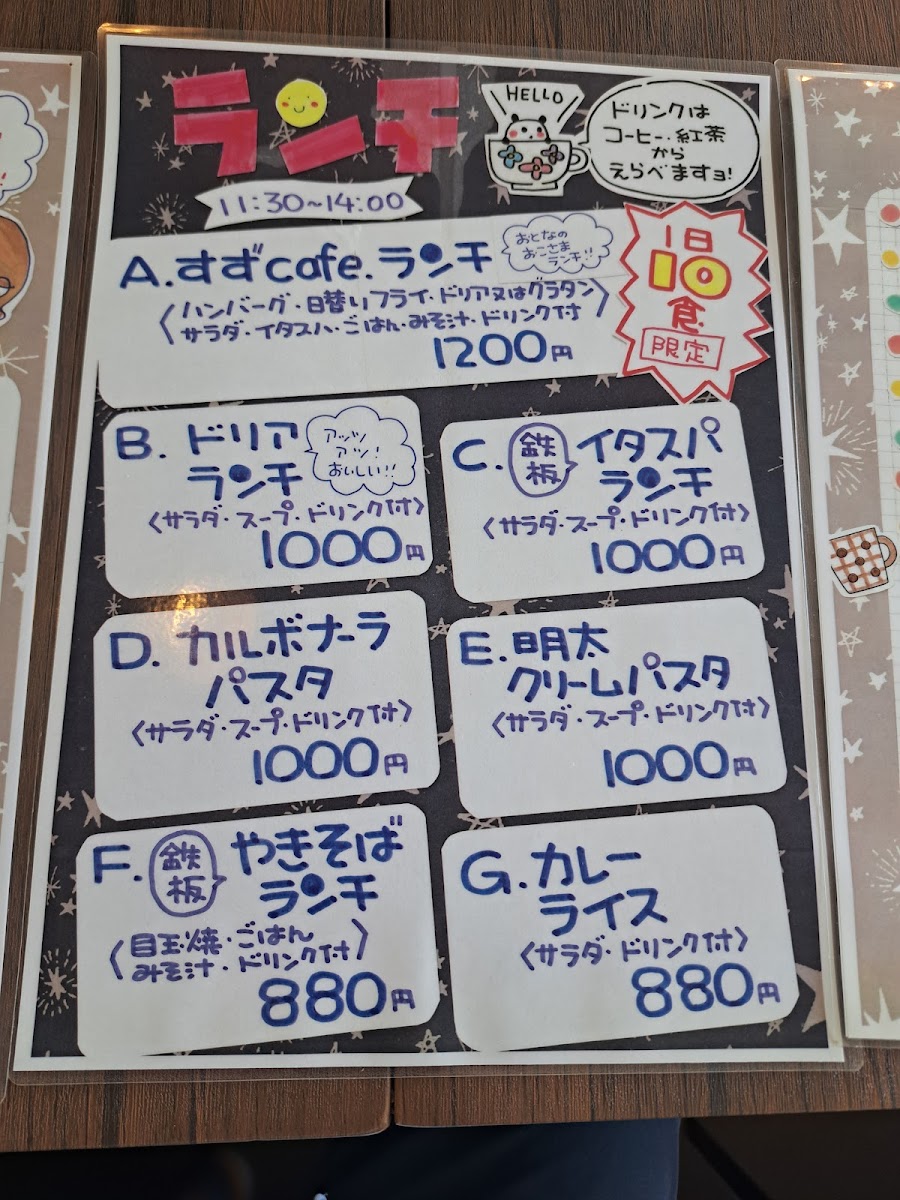 ランチ
11:30~14:00
HELLO
ドリンクは
コーヒー・紅茶
から
えらべますョ!
A.すずcafe.ランチ
おとなの
おこさま
ランチ!!
〈ハンバーグ・日替りフライ・ドリア又はグラタン〉
サラダ・イタスパ・ごはん・みそ汁・ドリンク付
1200円
1日
10
食
限定
B.ドリア
ランチ
アッツ
アツ!
おいしい!!
〈サラダ・スープ・ドリンク付〉
1000円
C.鉄板イタスパ
ランチ
〈サラダ・スープ・ドリンク付〉
1000円
D.カルボナーラ
パスタ
〈サラダ・スープ・ドリンク付〉
1000円
E.明太
クリームパスタ
〈サラダ・スープ・ドリンク付〉
1000円
F.鉄板やきそば
ランチ
〈目玉焼・ごはん
みそ汁・ドリンク付〉
880円
G.カレー
ライス
〈サラダ・ドリンク付〉
880円